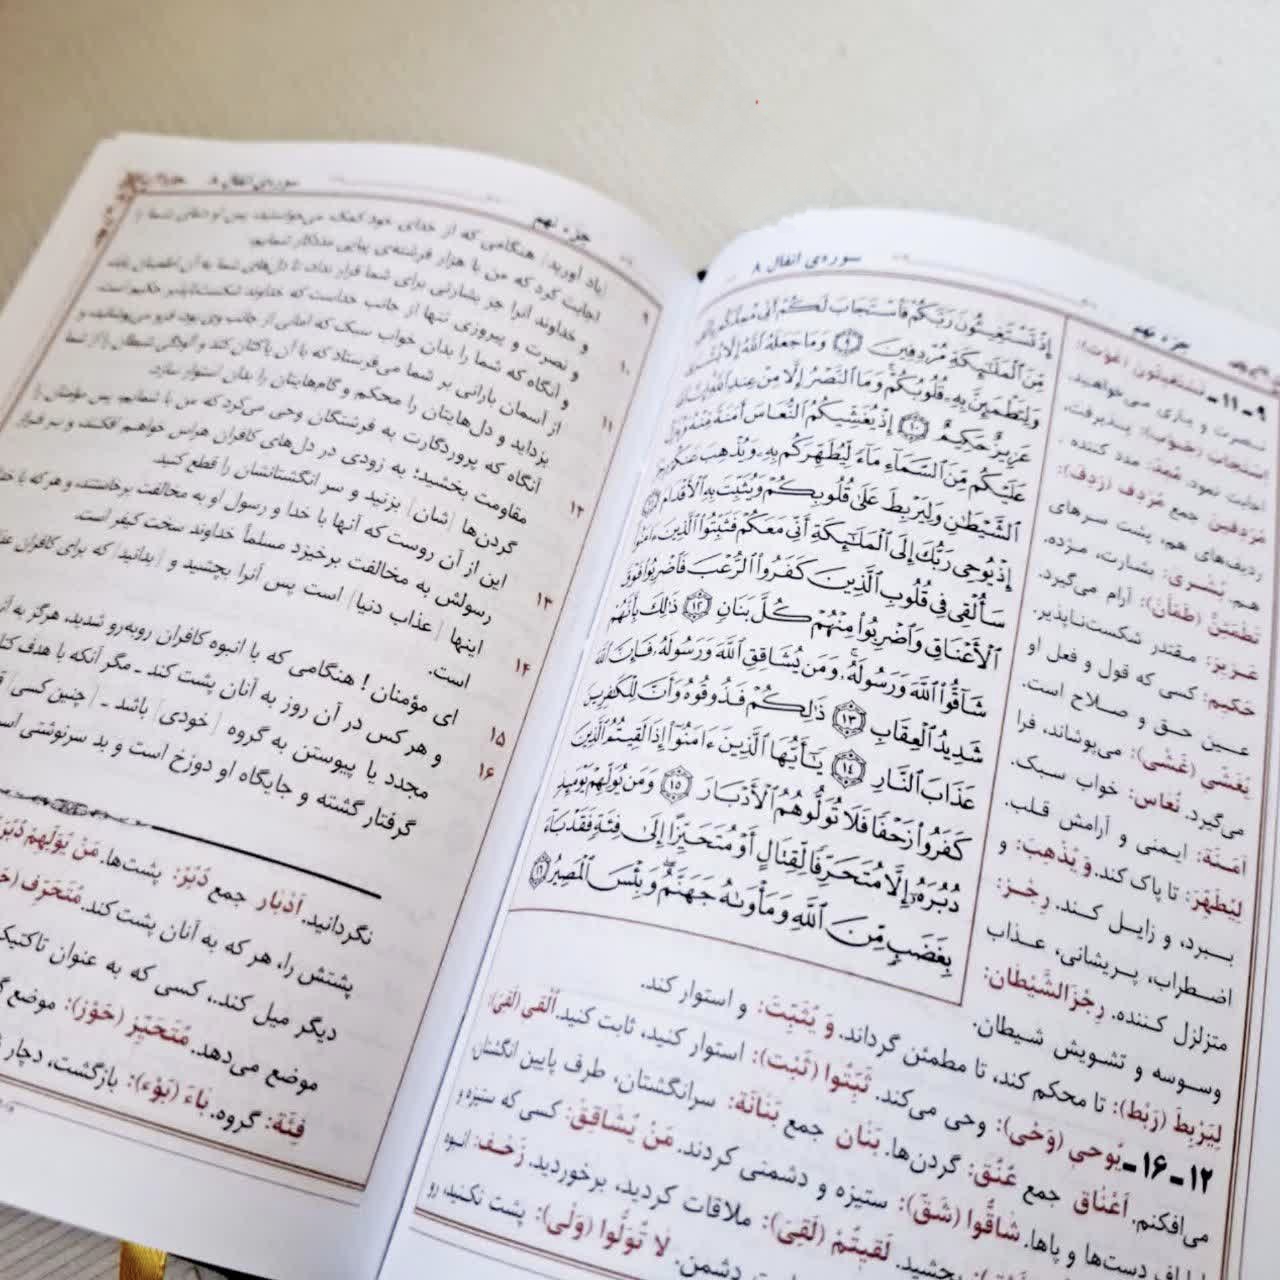 سوره‌ی انفال ۸
جزء نهم
إِذْ تَسْتَغِيثُونَ رَبَّكُمْ فَٱسْتَجَابَ لَكُمْ أَنِّى مُمِدُّكُم بِأَلْفٍ
مِّنَ ٱلْمَلَـٰٓئِكَةِ مُرْدِفِينَ ٩ وَمَا جَعَلَهُ ٱللَّهُ إِلَّا بُشْرَىٰ
وَلِتَطْمَئِنَّ بِهِۦ قُلُوبُكُمْ وَمَا ٱلنَّصْرُ إِلَّا مِنْ عِندِ ٱللَّهِ إِنَّ ٱللَّهَ
عَزِيزٌ حَكِيمٌ ١٠ إِذْ يُغَشِّيكُمُ ٱلنُّعَاسَ أَمَنَةً مِّنْهُ وَيُنَزِّلُ
عَلَيْكُم مِّنَ ٱلسَّمَآءِ مَآءً لِّيُطَهِّرَكُم بِهِۦ وَيُذْهِبَ عَنكُمْ رِجْزَ
ٱلشَّيْطَـٰنِ وَلِيَرْبِطَ عَلَىٰ قُلُوبِكُمْ وَيُثَبِّتَ بِهِ ٱلْأَقْدَامَ ١١
إِذْ يُوحِى رَبُّكَ إِلَى ٱلْمَلَـٰٓئِكَةِ أَنِّى مَعَكُمْ فَثَبِّتُوا۟ ٱلَّذِينَ ءَامَنُوا۟
سَأُلْقِى فِى قُلُوبِ ٱلَّذِينَ كَفَرُوا۟ ٱلرُّعْبَ فَٱضْرِبُوا۟ فَوْقَ
ٱلْأَعْنَاقِ وَٱضْرِبُوا۟ مِنْهُمْ كُلَّ بَنَانٍ ١٢ ذَٰلِكَ بِأَنَّهُمْ
شَآقُّوا۟ ٱللَّهَ وَرَسُولَهُۥ وَمَن يُشَاقِقِ ٱللَّهَ وَرَسُولَهُۥ فَإِنَّ ٱللَّهَ
شَدِيدُ ٱلْعِقَابِ ١٣ ذَٰلِكُمْ فَذُوقُوهُ وَأَنَّ لِلْكَـٰفِرِينَ
عَذَابَ ٱلنَّارِ ١٤ يَـٰٓأَيُّهَا ٱلَّذِينَ ءَامَنُوٓا۟ إِذَا لَقِيتُمُ ٱلَّذِينَ
كَفَرُوا۟ زَحْفًا فَلَا تُوَلُّوهُمُ ٱلْأَدْبَارَ ١٥ وَمَن يُوَلِّهِمْ يَوْمَئِذٍ
دُبُرَهُۥٓ إِلَّا مُتَحَرِّفًا لِّقِتَالٍ أَوْ مُتَحَيِّزًا إِلَىٰ فِئَةٍ فَقَدْ بَآءَ
بِغَضَبٍ مِّنَ ٱللَّهِ وَمَأْوَىٰهُ جَهَنَّمُ وَبِئْسَ ٱلْمَصِيرُ ١٦
۹ـ۱۱ـ تَسْتَغیثُونَ (غَوث):
نصرت و یاری می‌خواهید.
اِستَجابَ (جَوب): پذیرفت،
اجابت نمود. مُمِدّ: مدد کننده.
مُردِفینَ جمع مُردِف (رَدِف):
ردیف‌های هم، پشت سرهای
هم. بُشری: بشارت، مژده.
تَطمَئِنَّ (طَمأن): آرام می‌گیرد.
عَزیز: مقتدر شکست‌ناپذیر.
حَکیم: کسی که قول و فعل او
عین حق و صلاح است.
یُغَشّی (غَشی): می‌پوشاند، فرا
می‌گیرد. نُعاس: خواب سبک.
اَمَنَة: ایمنی و آرامش قلب.
لِیُطَهِّرَ: تا پاک کند. وَ یُذْهِبَ: و
ببرد، و زایل کند. رِجْز:
اضطراب، پریشانی، عذاب
متزلزل کننده. رِجْزَالشَّیْطان:
وسوسه و تشویش شیطان.
لِیَرْبِطَ (رَبْط): تا محکم کند، تا مطمئن گرداند. وَ یُثَبِّتَ: و استوار کند.
۱۲ـ۱۶ـ یُوحی (وَحْی): وحی می‌کند. ثَبِّتُوا (ثَبْت): استوار کنید، ثابت کنید. اُلْقی (لَقِیَ):
می‌افکنم. اَعْناق جمع عُنُق: گردن‌ها. بَنان جمع بَنانَة: سرانگشتان، طرف پایین انگشتان
دست‌ها و پاها. شاقُّوا (شَقّ): ستیزه و دشمنی کردند. مَنْ یُشاقِقْ: کسی که ستیزه و
بچشید. لَقیتُمْ (لَقِیَ): ملاقات کردید، برخوردید. زَحْف: انبوه
دشمن. لا تُوَلُّوا (وَلْی): پشت نکنید، رو
سوره‌ی انفال ۸
جزء نهم
۹ [یاد آورید] هنگامی که از خدای خود کمک می‌خواستید، پس او دعای شما را
اجابت کرد که من با هزار فرشته‌ی پیاپی مددکار شمایم.
۱۰ و خداوند آنرا جز بشارتی برای شما قرار نداد، تا دل‌های شما به آن اطمینان یابد
و نصرت و پیروزی تنها از جانب خداست که خداوند شکست‌ناپذیر حکیم است.
۱۱ و آنگاه که شما را بدان خواب سبک که امانی از جانب وی بود، فرو می‌پوشانید، و
از آسمان بارانی بر شما می‌فرستاد که با آن پاکتان کند و آلودگی شیطان را از شما
بزداید و دل‌هایتان را محکم و گام‌هایتان را بدان استوار سازد.
۱۲ آنگاه که پروردگارت به فرشتگان وحی می‌کرد که من با شمایم، پس مؤمنان را
مقاومت بخشید؛ به زودی در دل‌های کافران هراس خواهم افکند، و بر فراز
گردن‌ها [شان] بزنید و سر انگشتانشان را قطع کنید.
۱۳ این از آن روست که آنها با خدا و رسول او به مخالفت برخاستند، و هر که با خدا
رسولش به مخالفت برخیزد مسلماً خداوند سخت کیفر است.
۱۴ اینها [عذاب دنیا] است پس آنرا بچشید و [بدانید] که برای کافران
است.
۱۵ ای مؤمنان! هنگامی که با انبوه کافران روبه‌رو شدید، هرگز به
۱۶ و هر کس در آن روز به آنان پشت کند ـ مگر آنکه با هدف
مجدد یا پیوستن به گروه [خودی] باشد ـ [چنین کسی]
گرفتار گشته و جایگاه او دوزخ است و بد سرنوشتی
نگردانید. اَدْبار جمع دُبُر: پشت‌ها. مَنْ یُوَلِّهِمْ
پشتش را، هر که به آنان پشت کند. مُتَحَرِّف
دیگر میل کند.، کسی که به عنوان
موضع می‌دهد. مُتَحَیِّز (حَوْز): موضع
فِئَة: گروه. باءَ (بَوْء): بازگشت، دچار